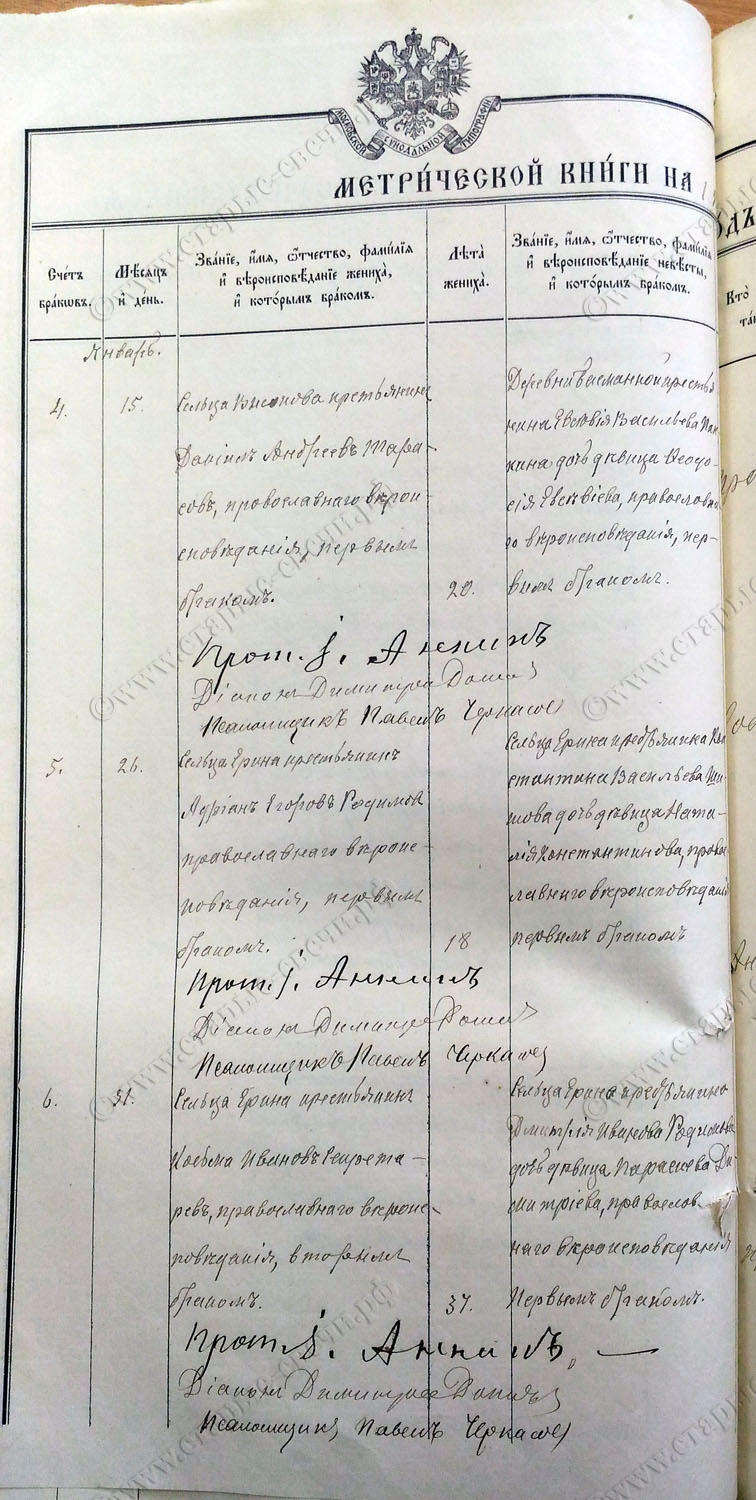 МОСКОВСКОЙ СѴНОДАЛЬНОЙ ТИПОГРАФІИ
МЕТРИ́ЧЕСКОЙ КНИ́ГИ НА 1
Счéтъ бра́кѡвъ.
Мѣ́сѧцъ и҆ день.
Зва́нїе, и҆́мѧ, ѻ҆́тчество, фами́лїѧ
и҆ вѣроисповѣ́данїе жениха̀,
и҆ кото́рымъ бра́комъ.
Лѣ́та
жениха̀.
Зва́нїе, и҆́мѧ, ѻ҆́тчество, фами́лїѧ
и҆ вѣроисповѣ́данїе невѣ́сты,
и҆ кото́рымъ бра́комъ.
Кто̀
Январь.
4.
15.
Сельца крестьянинъ
Даніилъ Андреевъ Тара-
совъ, православнаго вѣрои-
сповѣданія, первымъ
бракомъ.
20.
Деревни крестья-
нина Евсевія Васильева
кина дочь дѣвица Ѳеодо-
сія Евсевіева, православна
го вѣроисповѣданія, пер-
вымъ бракомъ.
Прот. І.
Діаконъ Димитрій
Псаломщикъ Павелъ Черкасовъ
5.
26.
Сельца Ерина крестьянинъ
Адріанъ Егоровъ Родимова
православнаго вѣроис-
повѣданія, первымъ
бракомъ.
18
Сельца Ерина крестьянина Кон
стантина Васильева Ши-
това дочь дѣвица Ната-
лія Константинова, право
славнаго вѣроисповѣданія
первымъ бракомъ
Прот. І.
Діаконъ Димитрій
Псаломщикъ Павелъ Черкасовъ
6.
31.
Сельца Ерина крестьянинъ
Косьма Ивановъ Секрета-
ревъ, православнаго вѣроис-
повѣданія, вторымъ
бракомъ.
37.
Сельца Ерина крестьянина
Дмитрія Иванова Родимова
дочь дѣвица Параскева Ди-
митріева, православ
наго вѣроисповѣданія
Первымъ бракомъ.
Прот. І.
Діаконъ Димитрій
Псаломщикъ Павелъ Черкасовъ
©www.старые-свечи.рф